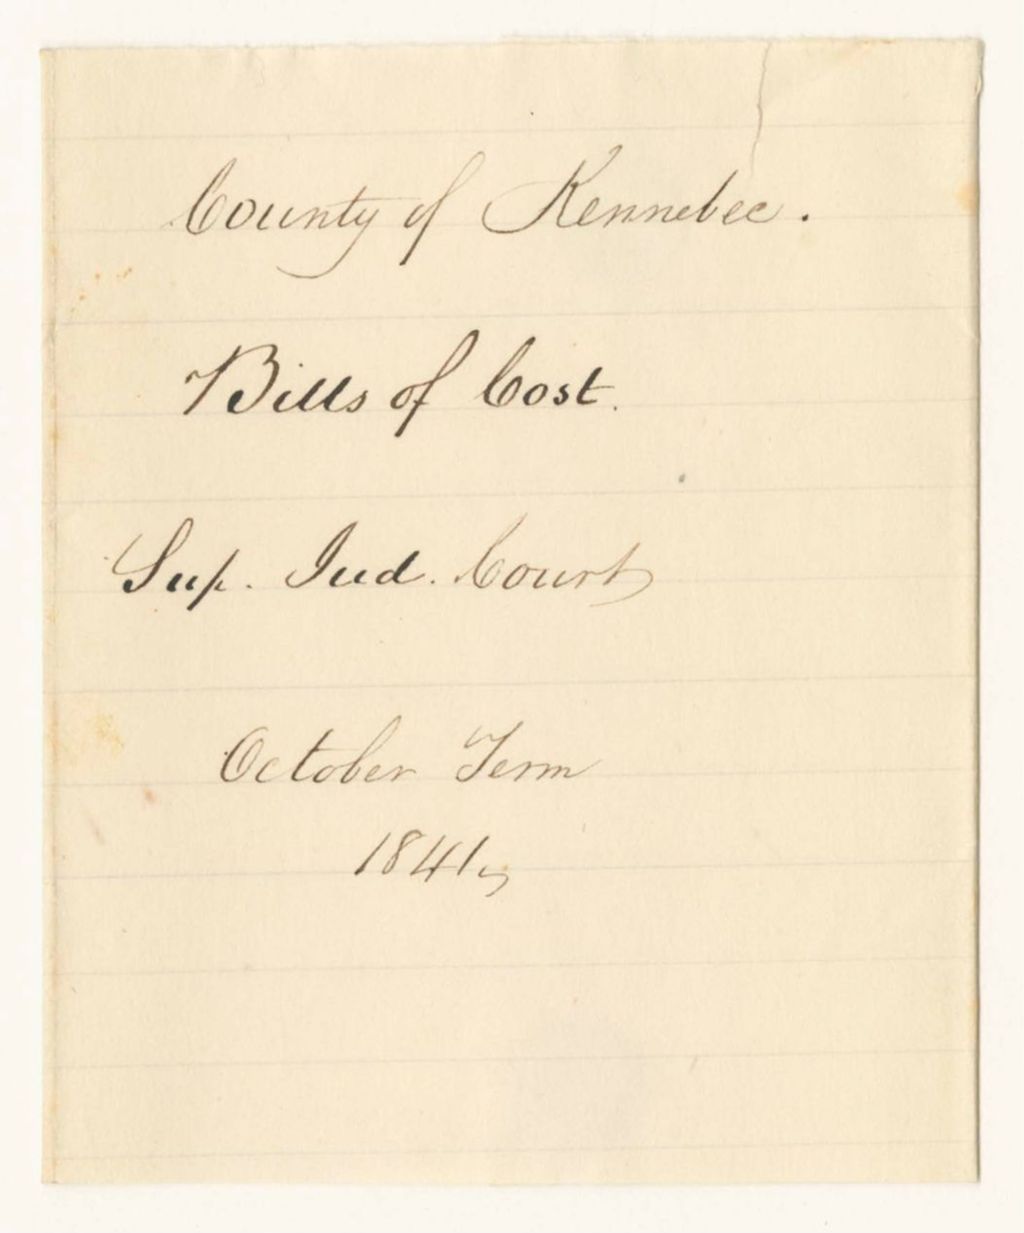 County of Kennebec.
Bills of Cost.
Sup. Jud. Court
October Term
1841,